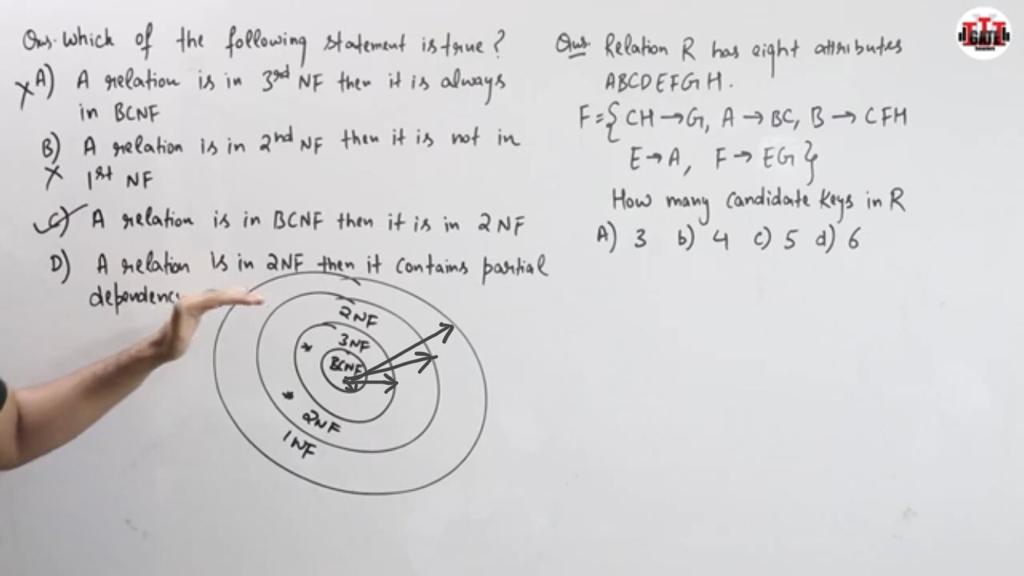 Ques. Which of the following statement is true?
A) A relation is in 3rd NF then it is always
in BCNF
B) A relation is in 2nd NF then it is not in
1st NF
C) A relation is in BCNF then it is in 2NF
D) A relation is in 2NF then it contains partial
dependency
2NF
3NF
BCNF
2NF
1NF
Ques Relation R has eight attributes
ABCDEFGH.
F={CH→G, A→BC, B→CFH
E→A, F→EG}
How many Candidate Keys in R
A) 3 b) 4 c) 5 d) 6
GATE